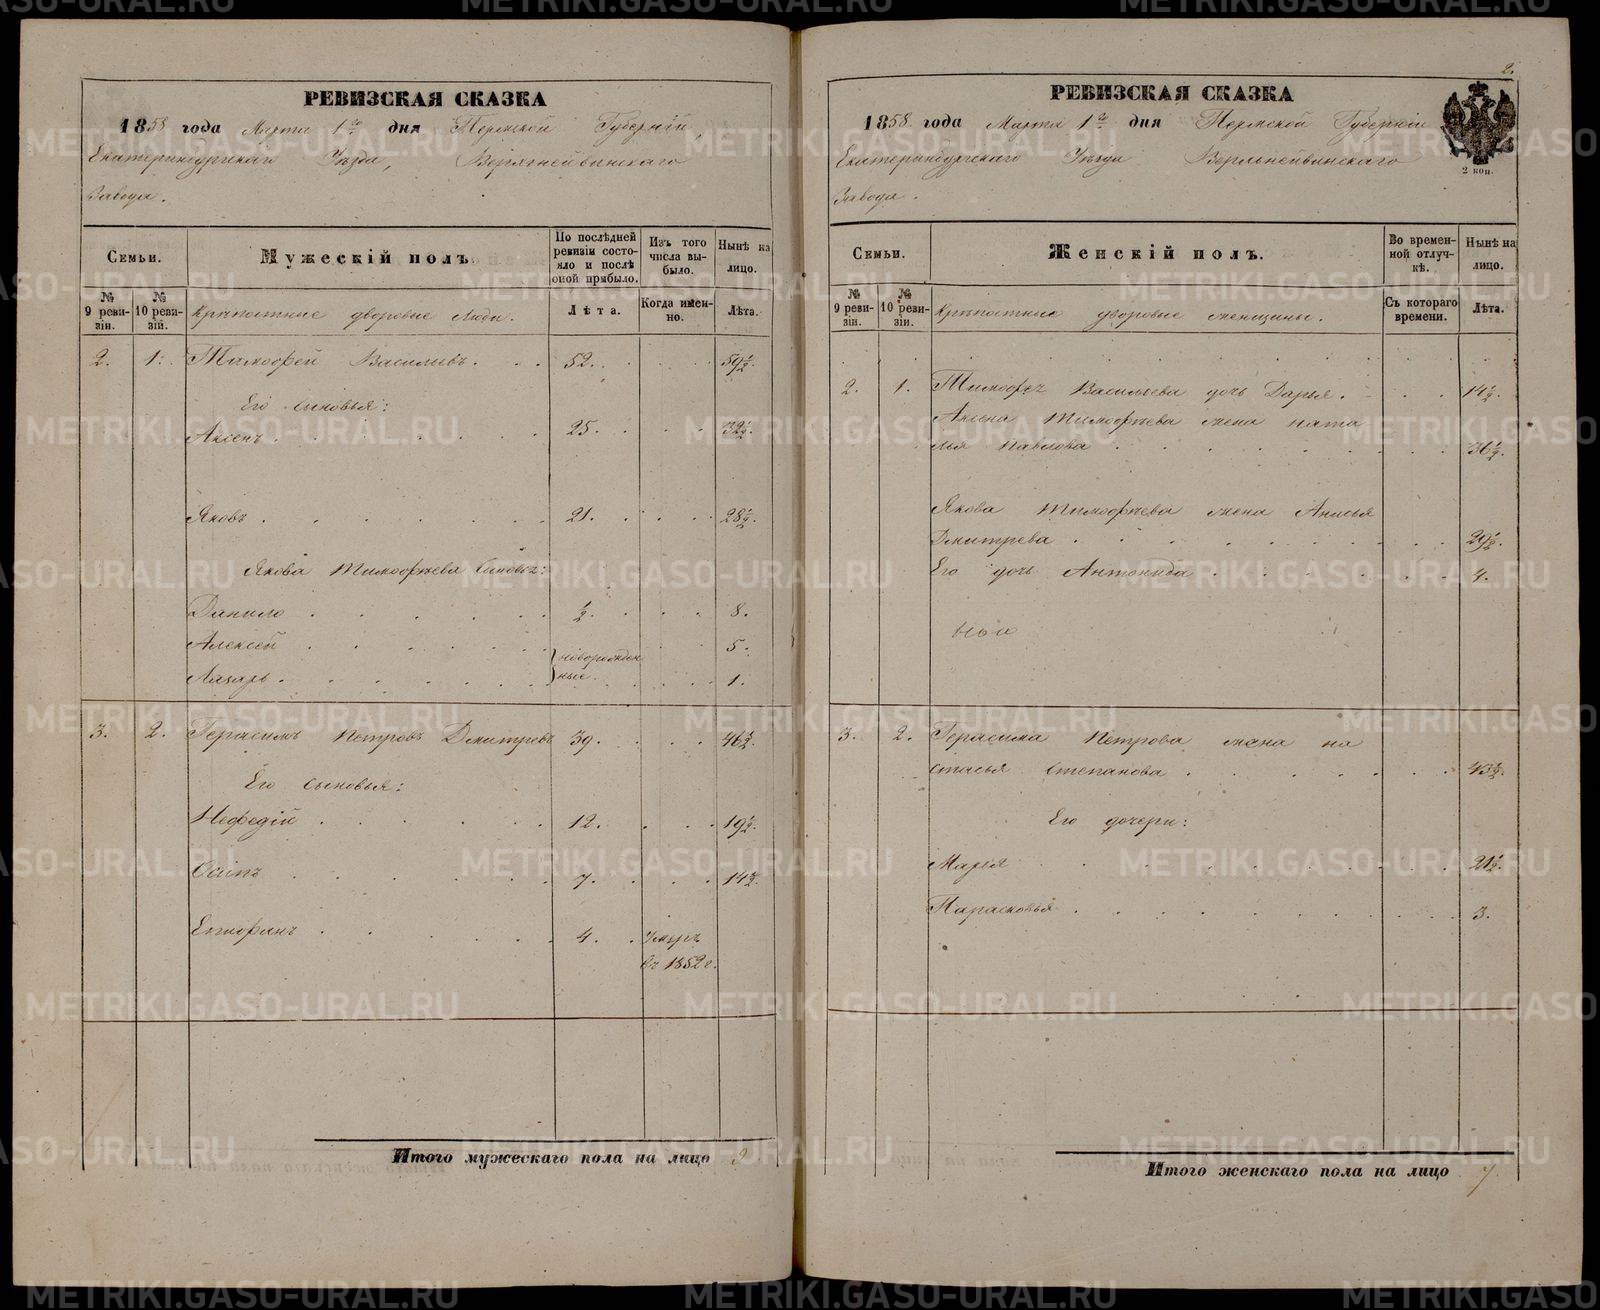 РЕВИЗСКАЯ СКАЗКА
1858 года Марта 1го дня Пермской Губерніи,
Екатеринбургскаго Уѣзда, Верхнейвинскаго
Завода.
Семьи.
Мужескій полъ.
По послѣдней ревизіи состояло и послѣ оной прибыло.
Изъ того числа выбыло.
Нынѣ на лицо.
№ 9 ревизіи.
№ 10 ревизій.
Крѣпостные дворовые люди.
Лѣта.
Когда именно.
Лѣта.
2. 1. Тимофей Васильевъ. 52. 59½.
Его сыновья:
Аксенъ. 25. 32½.
Яковъ. 21. 28½.
Якова Тимофѣева сыновья:
Данило ½. 8.
Алексей 5.
новорожден
ные.
Лазарь. 1.
3. 2. Герасимъ Петровъ Дмитревъ 39. 46½.
Его сыновья:
Нефедій 12. 19½.
Осипъ 7. 14½.
Епифанъ 4. Умеръ
въ 1852 г.
Итого мужескаго пола на лицо 9
2.
РЕВИЗСКАЯ СКАЗКА
1858 года Марта 1го дня Пермской Губерніи
Екатеринбургскаго Уѣзда Верхнейвинскаго
Завода.
2 коп.
Семьи.
Женскій полъ.
Во временной отлучкѣ.
Нынѣ на лицо.
№ 9 ревизіи.
№ 10 ревизіи.
Крѣпостные дворовые женщины.
Съ котораго времени.
Лѣта.
2. 1. Тимофея Васильева дочь Дарья. 14½.
Аксена Тимофѣева жена Ната
лья Павлова 36½.
Якова Тимофѣева жена Анисья
Дмитрева 29½.
Его дочь Антонида 4.
3. 2. Герасима Петрова жена На
стасья Степанова 43½.
Его дочери:
Марія 21½.
Парасковья 3.
Итого женскаго пола на лицо 7
METRIKI.GASO-URAL.RU